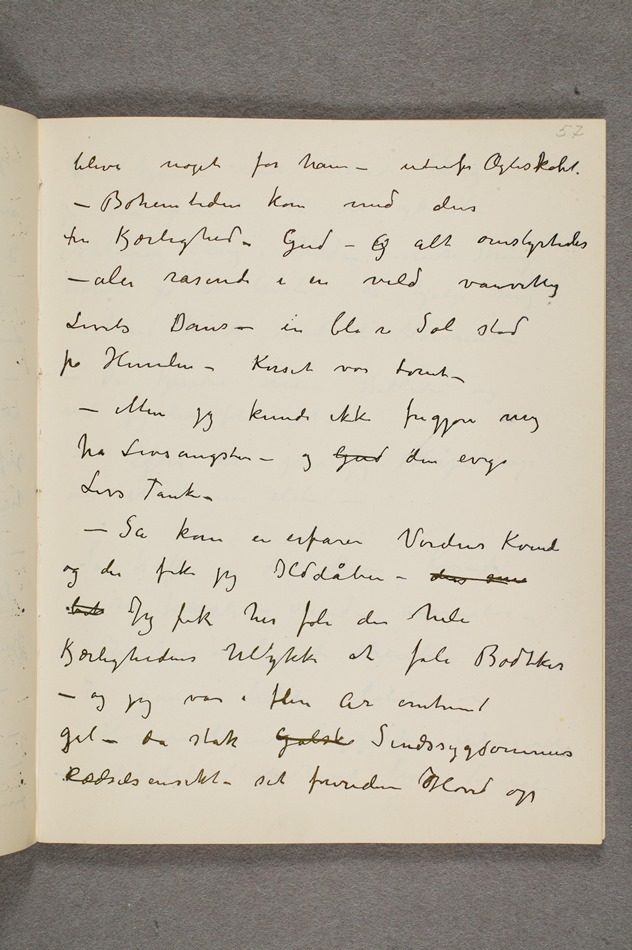 57
blive noget for ham – udenfor Ægteskabet.
– Bohemtiden kom med dens
fri Kjærlighed – Gud – og alt omstyrtedes
– alle rasende i en vild vanvittig
Livets Dans – en blodrø Sol stod
på Himmelen – Korset var sonet –
– Men jeg kunde ikke frigjøre mig
fra Livsangsten – og Gud den evige
Livs Tanke –
– Så kom en erfaren Verdens Kvinde
og der fik jeg Ilddåben –
Jeg fik her føle den hele
Kjærlighedens Ulykke at føle
– og jeg var i flere År omtrent
gal – da stak Galsk Sindssygdommens
Rædselsansikt – sit forvridne Hoved op